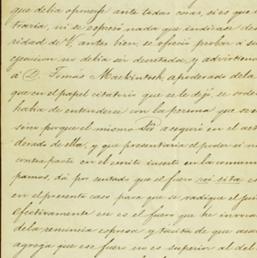 que debia oponerse ante todas cosas, si es que
traria, ni se ofreció nada que indicase des
ridad de V. antes bien se ofreció probar a su
ejecucion no debia ser decretada, y advirtiendo
á D. Tomas Mackintosh apoderado de la
que en el papel citatorio que se le dejó se orde
haba de entenderse con la persona que se
sino porque el mismo aseguró en el acto
derado de ella, y que presentaria el poder si
contraparte en el emite
pamos, dá por sentado que el fuero rei sitae es
en el presente caso para que se radique el jui
Efectivamente no es el fuero que he invoca
de la renuncia expresa y tacita de que aca
agrega que ese fuero no es superior al del